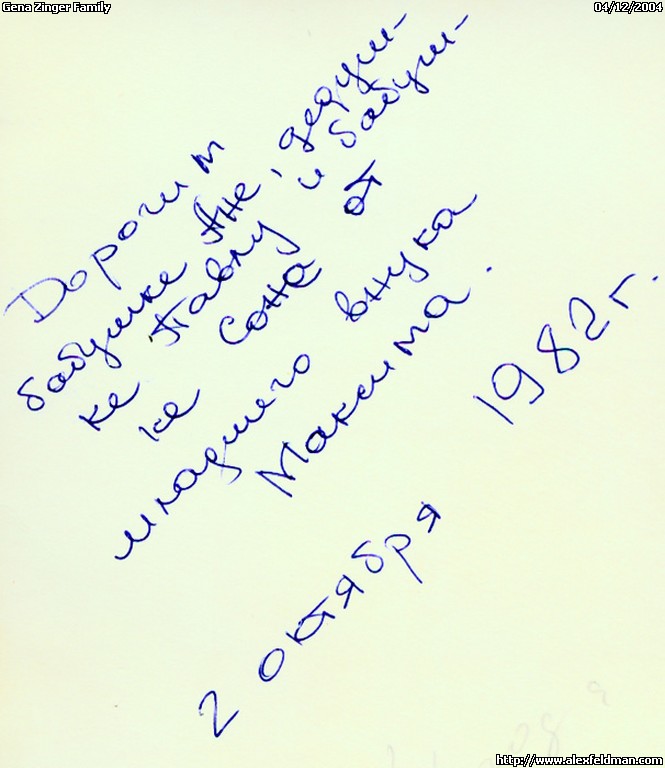 Gena Zinger Family
04/12/2004
Дорогим
бабушке Ане, дедуш-
ке Павлу и бабуш-
ке Соне от
младшего внука
Максима.
2 октября 1982 г.
http://www.alexfeldman.com